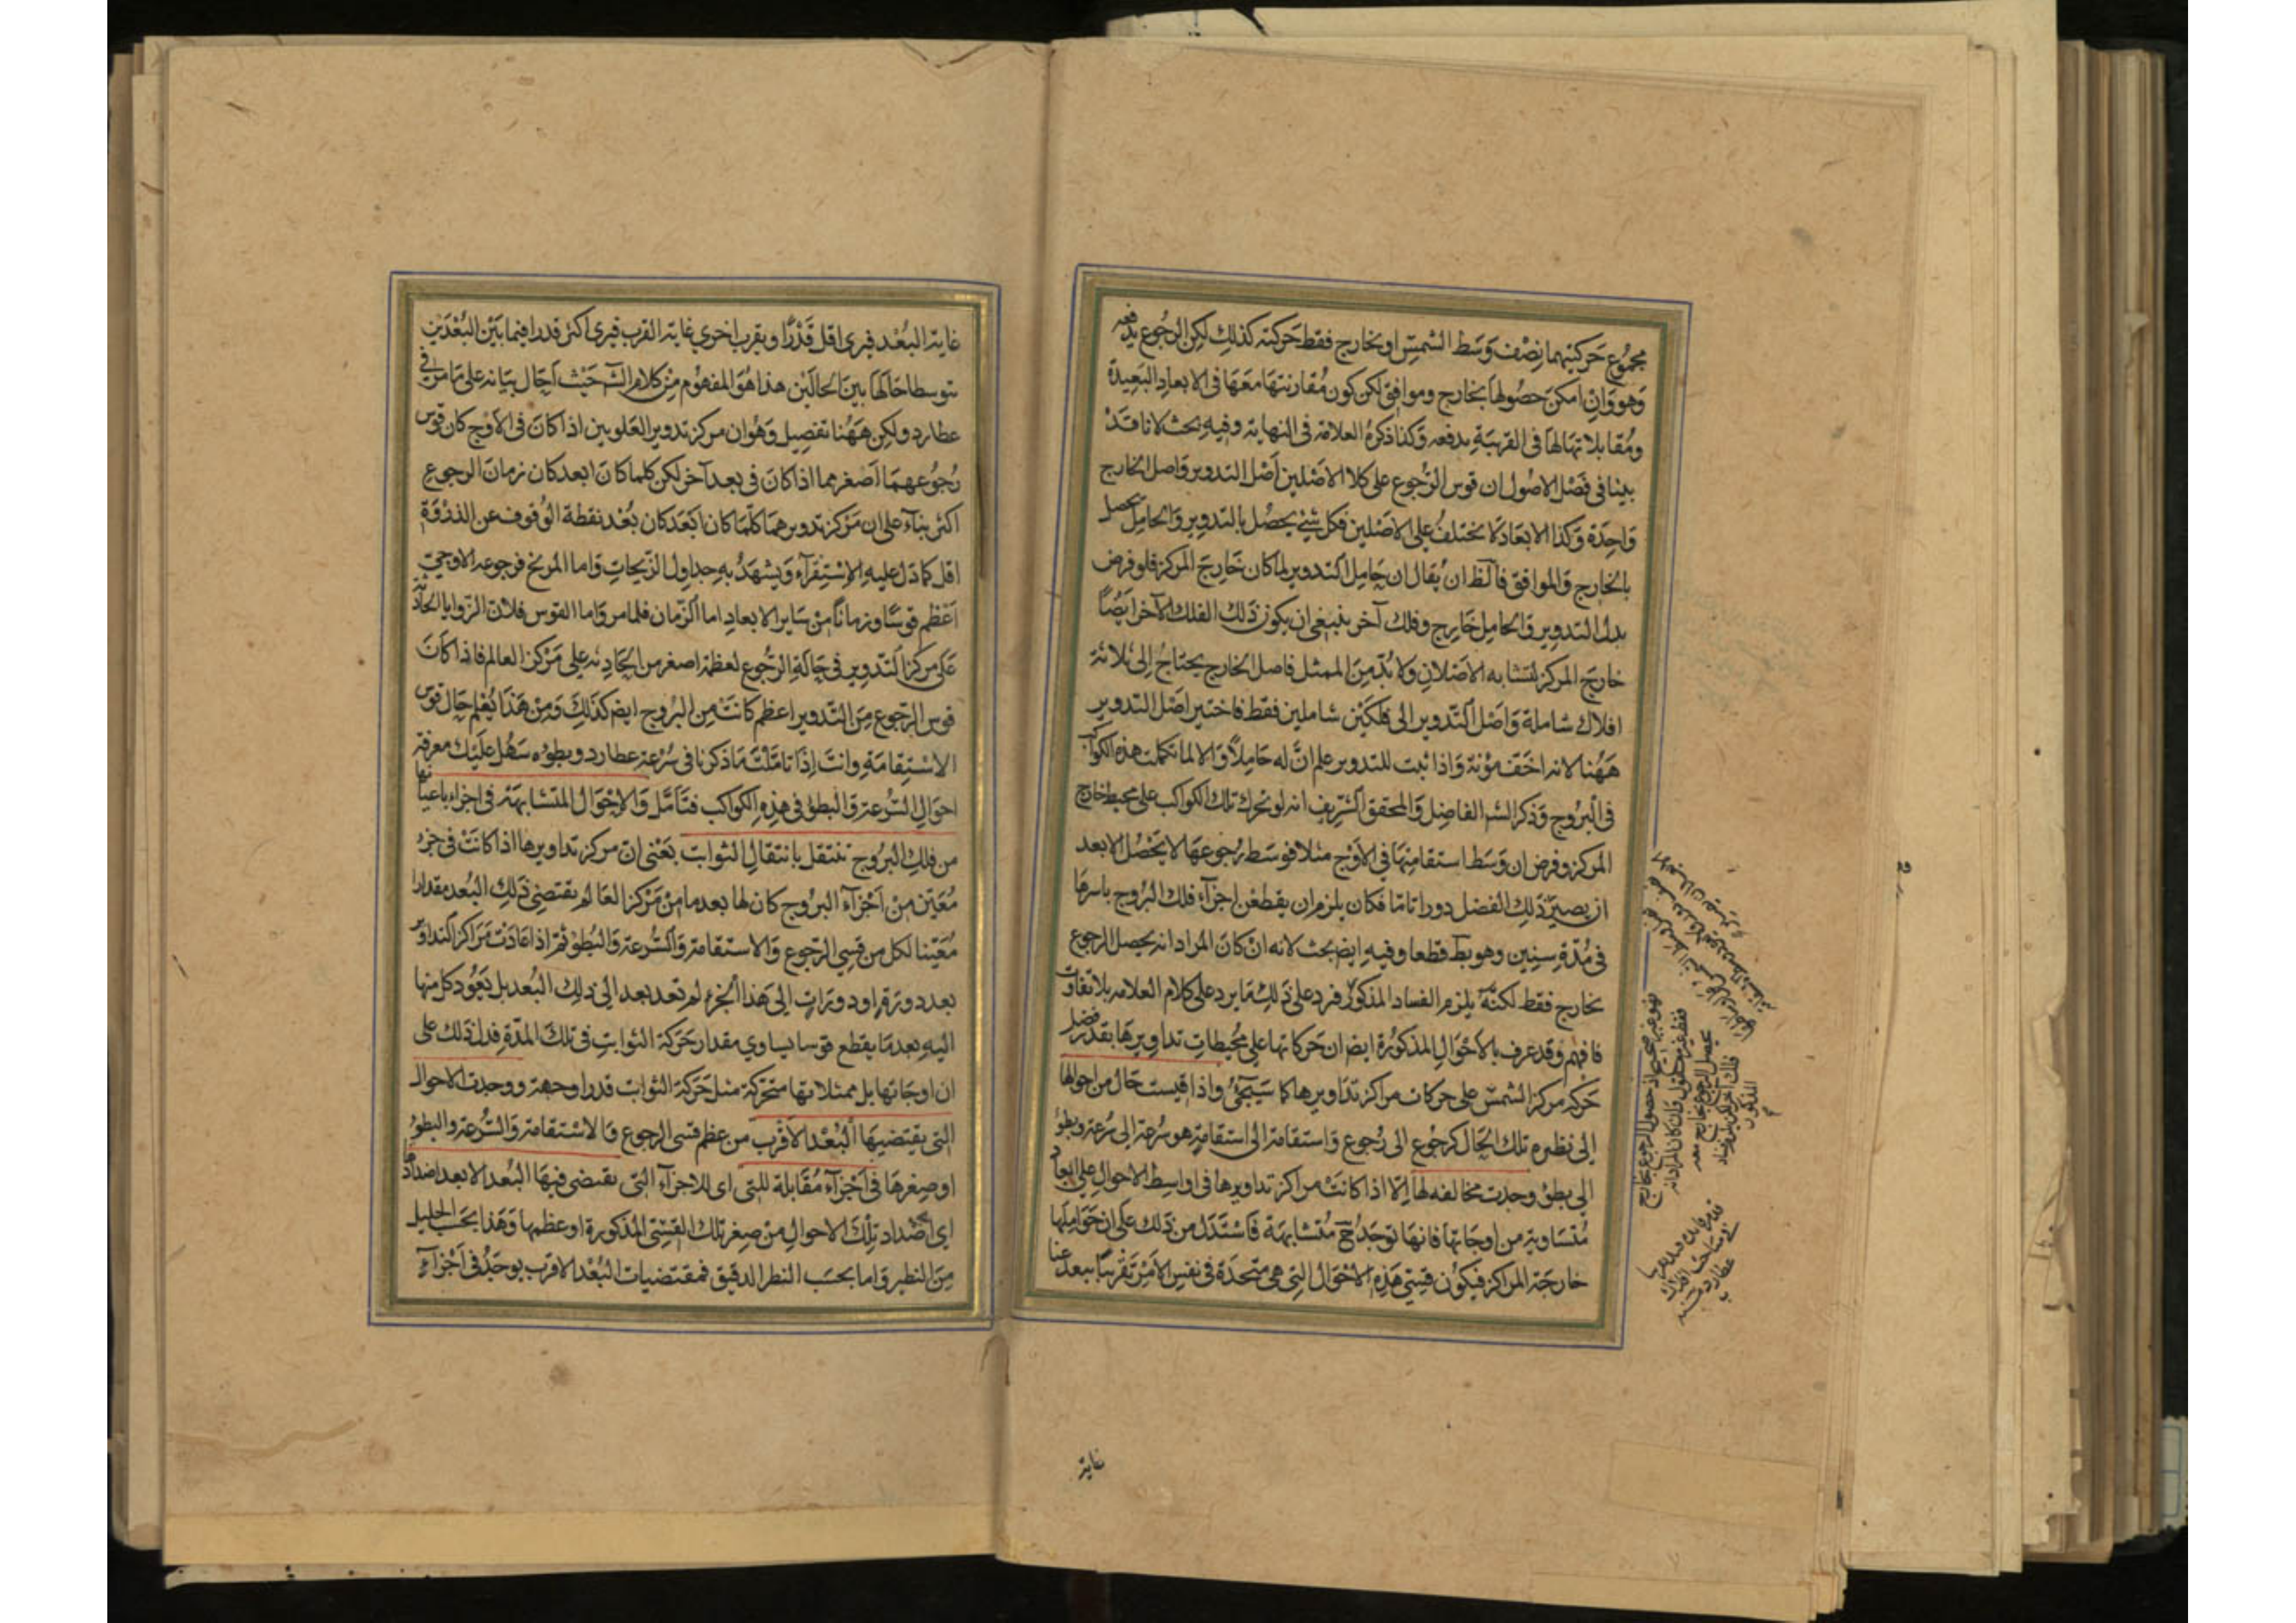 مجموع حركتيهما نصف وسط الشمس او بخارج فقط حركته كذلك لكن الرجوع يدفعه
وهو وان امكن حصولها بخارج وموافق لكن كون مقارنتها معها في الابعاد البعيدة
ومقابلاتها لها في القريبة يدفعه وكذا ذكره العلامة في النهاية وفيه بحث لانا قد
بينا في فصل الاصول ان قوس الرجوع على كلا الاصلين اصل التدوير واصل الخارج
واحدة وكذا الابعاد لا يختلف على الاصلين فكل شئ يحصل بالتدوير والحامل يحصل
بالخارج والموافق فالظ ان يقال ان حامل التدوير لما كان خارج المركز فلو فرض
بدل التدوير والحامل خارج وفلك آخر ينبغي ان يكون ذلك الفلك الآخر ايضا
خارج المركز لتشابه الاصلان ولا بد من الممثل فاصل الخارج يحتاج الى ثلاثة
افلاك شاملة واصل التدوير الى فلكين شاملين فقط فاختير اصل التدوير
ههنا لانه اخف مؤنة واذا ثبت للتدوير علم ان له حاملا والا لما تكملت هذه الكواكب
في البروج وذكر الشر الفاضل والمحقق الشريف انه لو تحرك تلك الكواكب على محيط خارج
المركز وفرض ان وسط استقامتها في الاوج مثلا فوسط رجوعها لا يحصل الا بعد
ان يصير ذلك الفضل دورا تاما فكان يلزم ان يقطعن اجزاء فلك البروج باسرها
في مدة سنين وهو بط قطعا وفيه ايض بحث لانه ان كان المراد انه يحصل الرجوع
بخارج فقط لكنه يلزم الفساد المذكور فرد على ذلك ما يرد على كلام العلامة بلا تفاوت
فافهم وقد عرف بالاحوال المذكورة ايض ان حركاتها على محيطات تداويرها بقدر فضل
حركه مركز الشمس على حركات مراكز تداويرها كما سيجئ واذا قيست حال من احوالها
الى نظيره تلك الحال كرجوع الى رجوع واستقامة الى استقامة هو سرعة الى سرعة وبطؤ
الى بطؤ وجدت مخالفه لها الا اذا كانت مراكز تداويرها في اواسط الاحوال على ابعاد
متساوية من اوجاتها فانها توجد ح متشابهة فاستدل من ذلك على ان حواملها
خارجة المراكز فيكون قسي هذه الاحوال التي هي متحدة في نفس الامر تقريبا ببعد عنا
غاية
غاية البعد فيرى اقل قدرا وبقرب اخرى غاية القرب فيرى اكثر قدرا فيما بين البعدين
يتوسط احالها بين الحالين هذا هو المفهوم من كلام الشر حيث احال بيانه على ما مر في
عطارد ولكن ههنا تفصيل وهو ان مركز تدوير العلويين اذا كان في الاوج كان قوس
رجوعهما اصغر مما اذا كان في بعد آخر لكن كلما كان ابعد كان زمان الرجوع
اكثر بناء على ان مركز تدويرهما كلما كان ابعد كان بعد نقطة الوقوف عن الذروة
اقل كما دل عليه الاستقراء ويشهد به جداول الزيجات واما المريخ فرجوعه الاوجي
اعظم قوسا وزمانا من ساير الابعاد اما الزمان فلما مر واما القوس فلان الزوايا الحادثة
على مركز التدوير في حالة الرجوع لعظمه اصغر من الحادثه على مركز العالم فاذا كان
قوس الرجوع من التدوير اعظم كانت من البروج ايض كذلك ومن هذا يعلم حال قوس
الاستقامة وانت اذا تاملت ما ذكرنا في سرعة عطارد وبطؤه سهل عليك معرفة
احوال السرعة والبطؤ في هذه الكواكب فتامل والاحوال المتشابهة في اجزاء باعيانها
من فلك البروج تنتقل بانتقال الثوابت يعني ان مركز تداويرها اذا كانت في جزء
معين من اجزاء البروج كان لها بعد ما من مركز العالم يقتضي ذلك البعد مقدارا
معينا لكل من قسي الرجوع والاستقامة والسرعة والبطؤ ثم اذا عادت مراكز التداوير
بعد دورة او دورات الى هذا الجزء لم تعد بعد الى ذلك البعد بل يعود كل منها
اليه بعد ما يقطع قوسا يساوي مقدار حركة الثوابت في تلك المدة فدل ذلك على
ان اوجاتها بل ممثلاتها متحركة مثل حركة الثوابت قدرا وجهة ووجدت الاحوال
التي يقتضيها البعد الاقرب من عظم قسي الرجوع والاستقامة والسرعة والبطؤ
او صغرها في اجزاء مقابلة للتي اى للاجزاء التي يقتضى فيها البعد الابعد اضدادها
اى اضداد تلك الاحوال من صغر تلك القسي المذكورة او عظمها وهذا بحسب الجليل
من النظر واما بحسب النظر الدقيق فمقتضيات البعد الاقرب يوجد في اجزاء